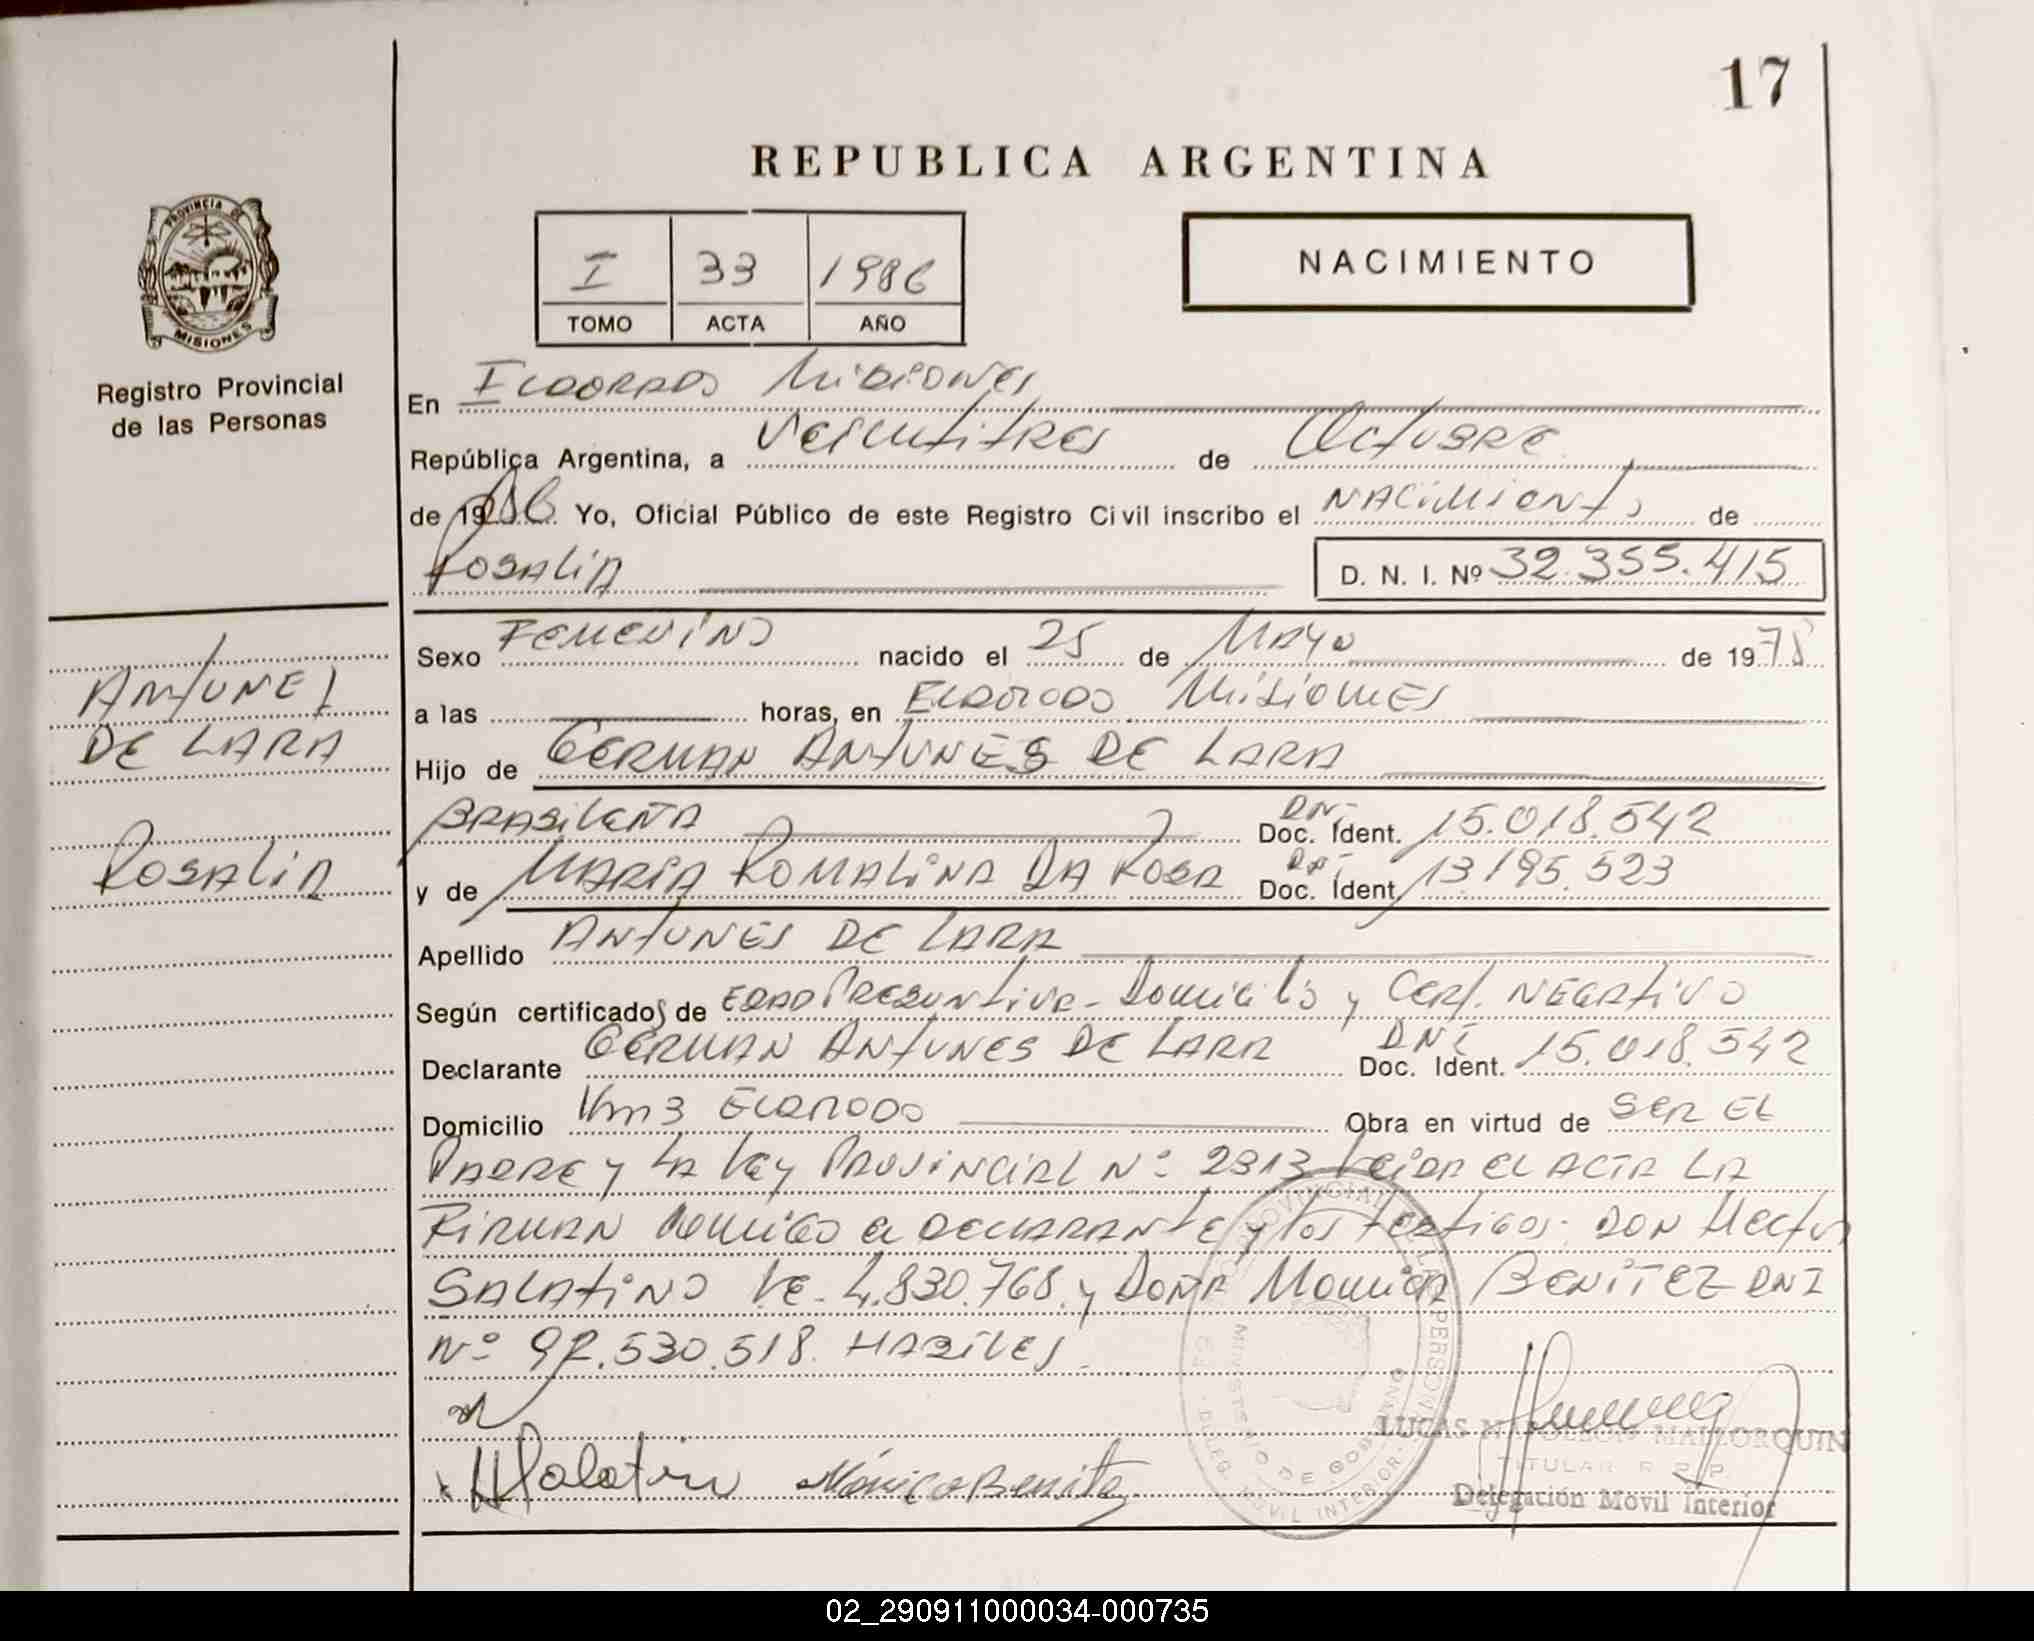 17
REPUBLICA ARGENTINA
I 33 1986
TOMO ACTA AÑO
NACIMIENTO
PROVINCIA DE MISIONES
Registro Provincial
de las Personas
En ELDORADO MISIONES
República Argentina, a VEINTITRES de OCTUBRE
de 1986 Yo, Oficial Público de este Registro Civil inscribo el NACIMIENTO de
ROSALIA D. N. I. Nº 32.355.415
ANTUNES
DE LARA
ROSALIA
Sexo FEMENINO nacido el 25 de MAYO de 1978
a las horas, en ELDORADO MISIONES
Hijo de GERMAN ANTUNES DE LARA
BRASILEÑA DNI Doc. Ident. 15.018.542
y de MARIA ROMALINA DA ROSA DNI Doc. Ident 13195.523
Apellido ANTUNES DE LARA
Según certificados de EDAD PRESUNTIVA - DOMICILIO y CERT. NEGATIVO
Declarante GERMAN ANTUNES DE LARA DNI Doc. Ident. 15.018.542
Domicilio Km3 ELDORADO Obra en virtud de SER EL
PADRE y LA LEY PROVINCIAL Nº 2313 LEIDA EL ACTA LA
FIRMAN CONMIGO EL DECLARANTE y LOS TESTIGOS: DON HECTOR
SALATINO LE. 4.830.768 y DOÑA MONICA BENITEZ DNI
Nº 92.530.518. HABILES.
HSalatino Mónica Benitez
LUCAS NAPOLEON MALLORQUIN
TITULAR R. P. P.
Delegación Movil Interior
02_290911000034-000735